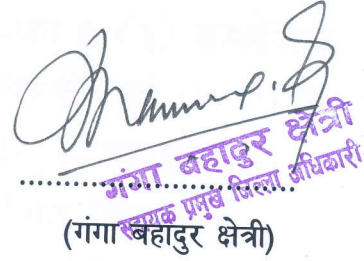 गंगा बहादुर क्षेत्री
सहायक प्रमुख जिल्ला अधिकारी
....................................
(गंगा बहादुर क्षेत्री)